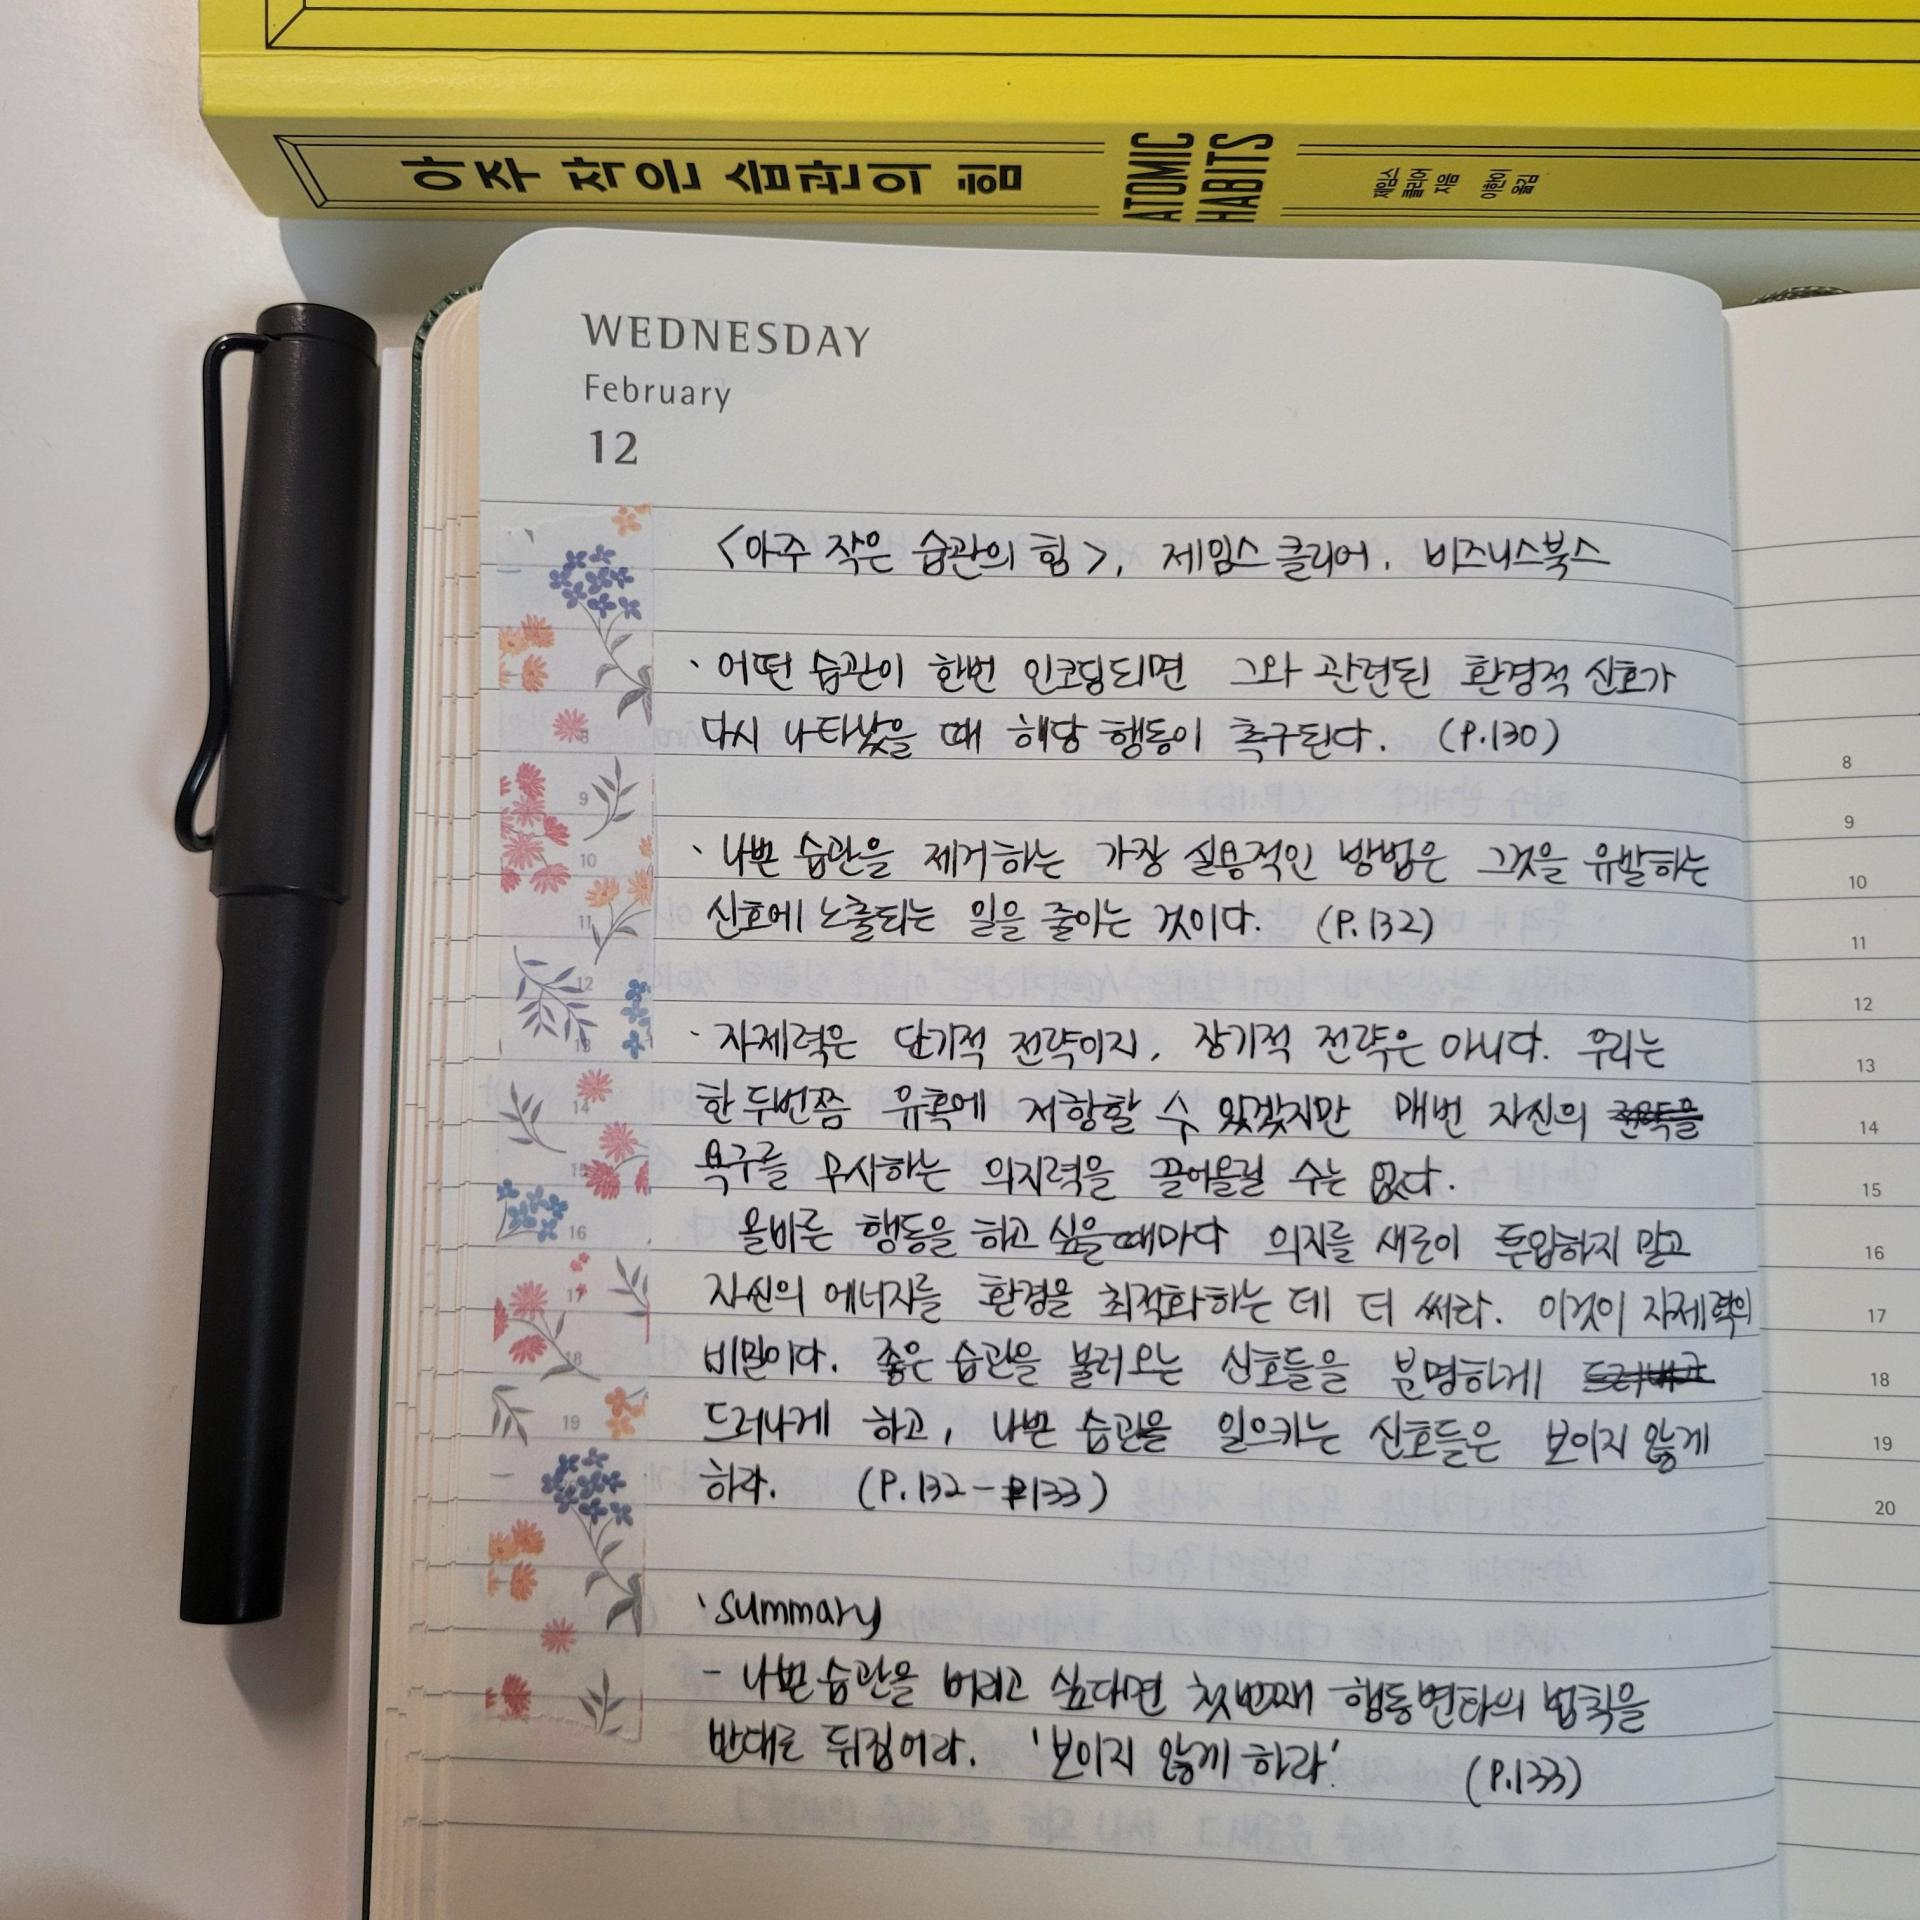 아주 작은 습관의 힘
ATOMIC
HABITS
제임스
클리어
지음
이한이
옮김
WEDNESDAY
February
12
<아주 작은 습관의 힘>, 제임스 클리어. 비즈니스북스
· 어떤 습관이 한번 인코딩되면 그와 관련된 환경적 신호가
다시 나타났을 때 해당 행동이 촉구된다. (P.130)
· 나쁜 습관을 제거하는 가장 실용적인 방법은 그것을 유발하는
신호에 노출되는 일을 줄이는 것이다. (P.132)
· 자제력은 단기적 전략이지, 장기적 전략은 아니다. 우리는
한두번쯤 유혹에 저항할 수 있겠지만 매번 자신의
욕구를 무시하는 의지력을 끌어올릴 수는 없다.
올바른 행동을 하고 싶을 때마다 의지를 새로이 투입하지 말고
자신의 에너지를 환경을 최적화하는 데 더 써라. 이것이 자제력의
비밀이다. 좋은 습관을 불러오는 신호들을 분명하게
드러나게 하고, 나쁜 습관을 일으키는 신호들은 보이지 않게
하라. (P.132-133)
· summary
- 나쁜 습관을 버리고 싶다면 첫번째 행동변화의 법칙을
반대로 뒤집어라. '보이지 않게 하라.' (P.133)
8
9
10
11
12
13
14
15
16
17
18
19
8
9
10
11
12
13
14
15
16
17
18
19
20